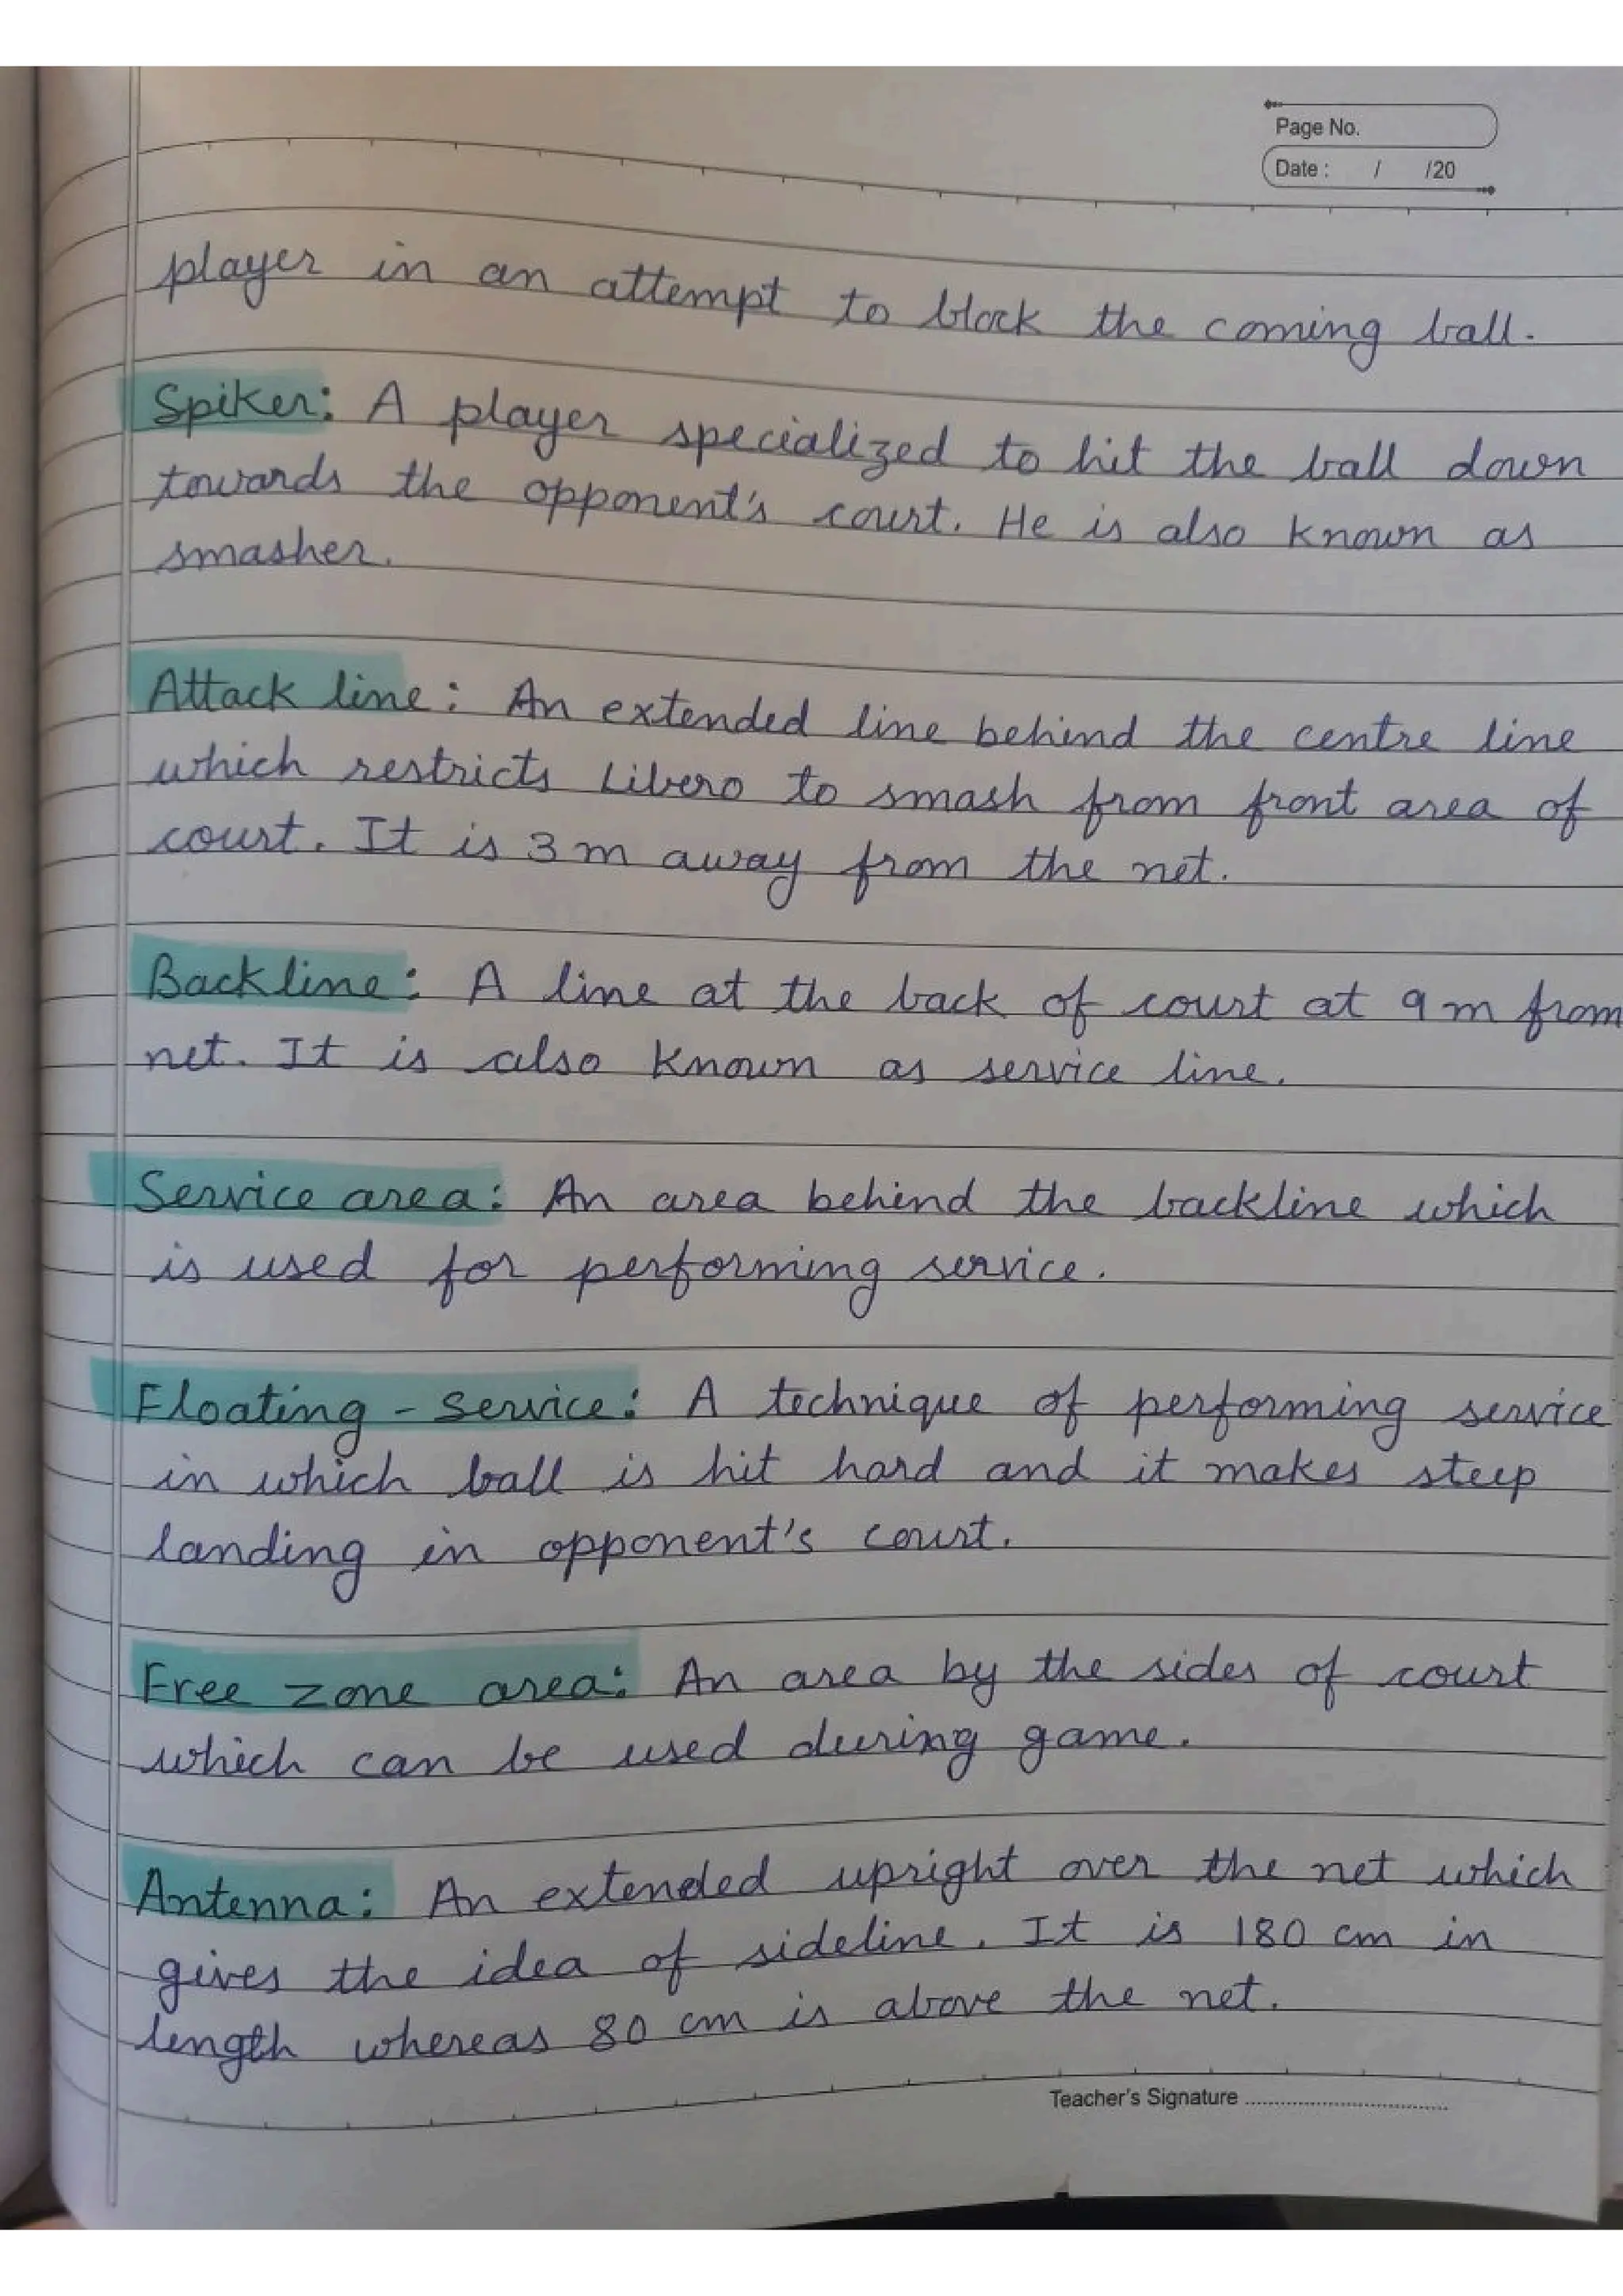 Page No.
Date : / /20
player in an attempt to block the coming ball.
Spiker: A player specialized to hit the ball down
towards the opponent's court. He is also known as
smasher.
Attack line: An extended line behind the centre line
which restricts Libero to smash from front area of
court. It is 3 m away from the net.
Backline: A line at the back of court at 9 m from
net. It is also known as service line.
Service area: An area behind the backline which
is used for performing service.
Floating - service: A technique of performing service
in which ball is hit hard and it makes steep
landing in opponent's court.
Free zone area: An area by the sides of court
which can be used during game.
Antenna: An extended upright over the net which
gives the idea of sideline. It is 180 cm in
length whereas 80 cm is above the net.
Teacher's Signature ....................................